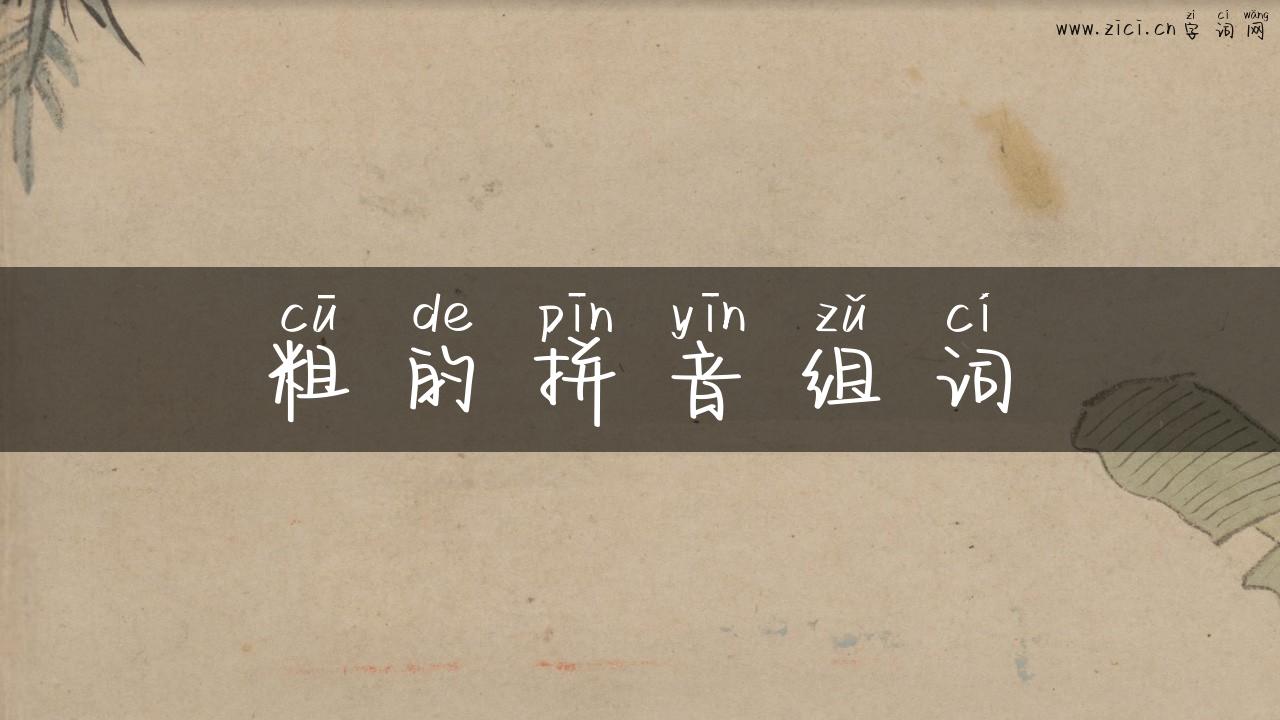 www.zici.cn
zì cí wǎng
字词网
cū de pīn yīn zǔ cí
粗的拼音组词